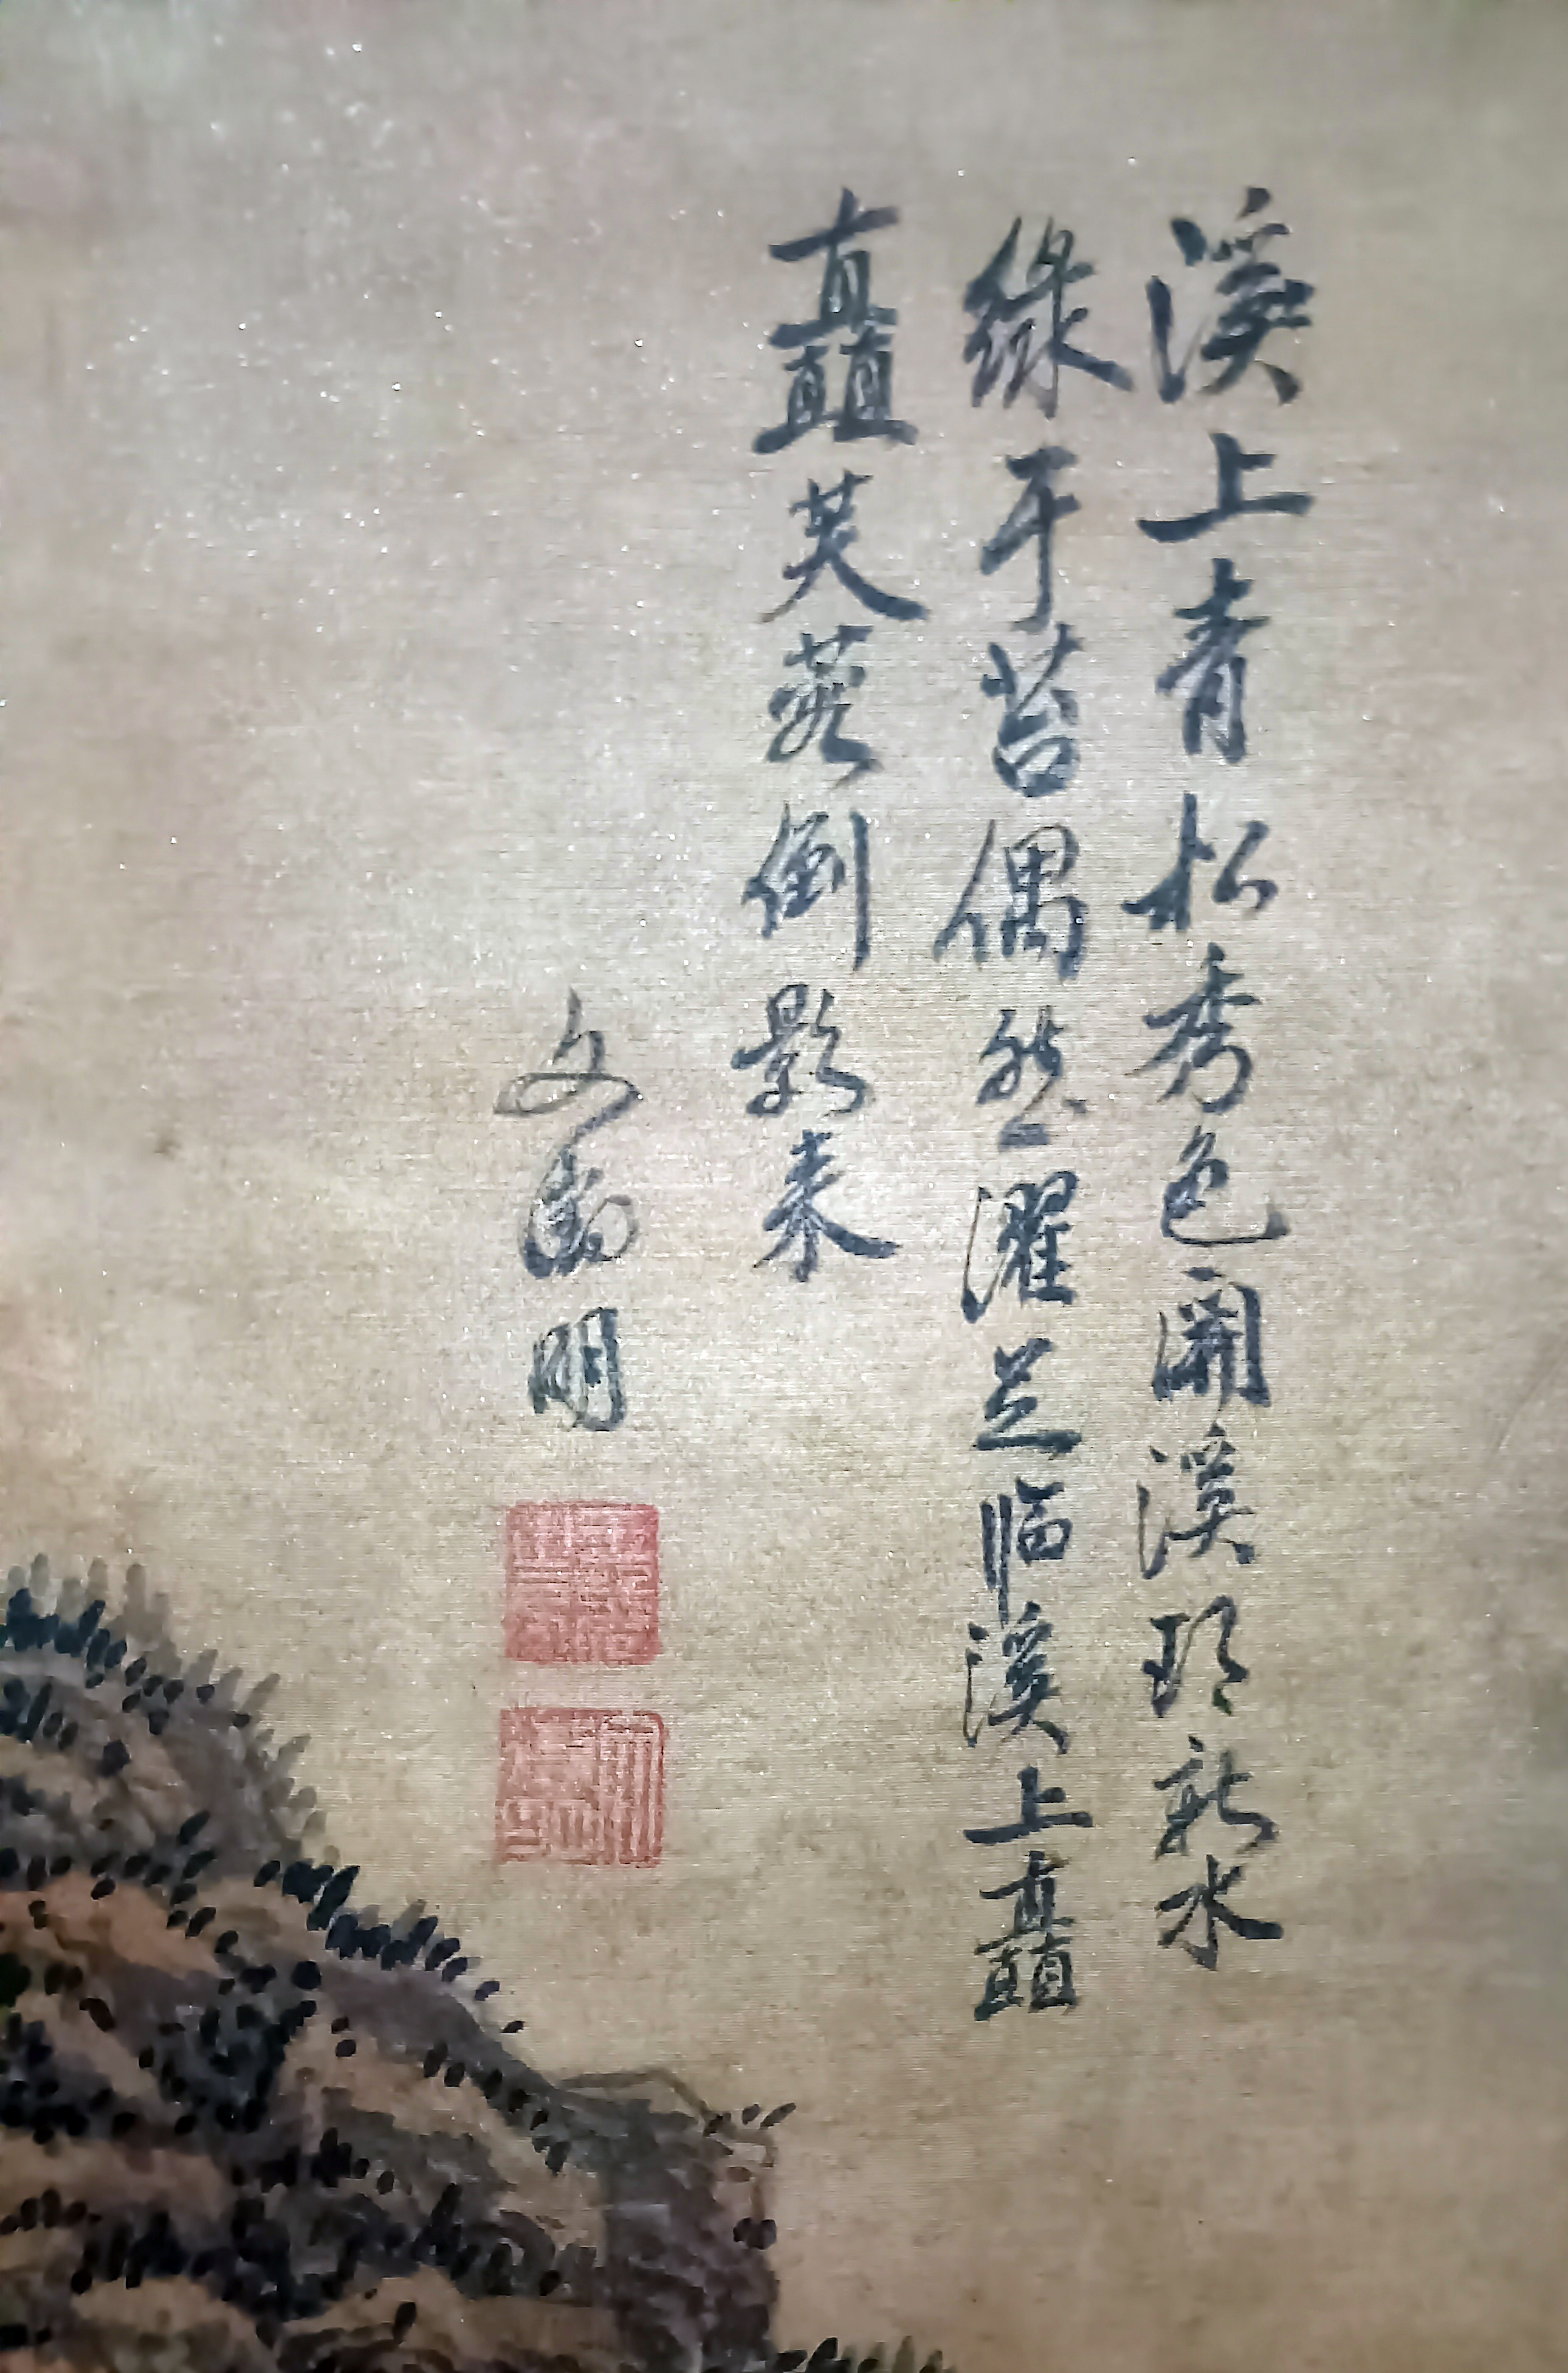 溪上青松秀色開溪頭新水
綠于苔偶然濯足臨溪上矗
矗芙蓉倒影来
文徵明